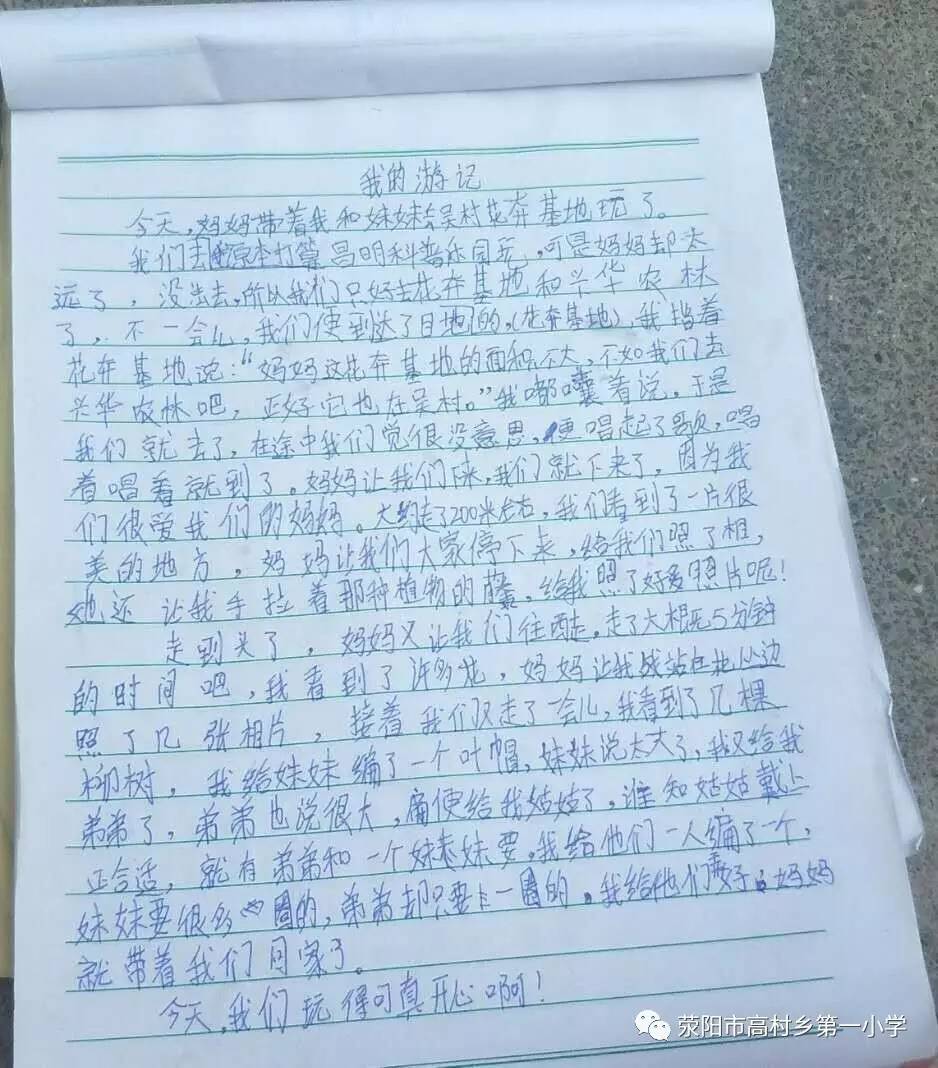 我的游记
今天,妈妈带着我和妹妹去吴村花卉基地玩了。
我们原本打算昌明科普乐园玩,可是妈妈却太
远了,没出去,所以我们只好去花卉基地和兴华农林
了,不一会儿,我们便到达了目地的。(花卉基地),我指着
花卉基地说:“妈妈这花卉基地的面积不大,不如我们去
兴华农林吧,正好它也在吴村。”我嘟囔着说。于是
我们就去了,在途中我们觉很没意思,便唱起了歌,唱
着唱着就到了。妈妈让我们下来,我们就下来了,因为我
们很爱我们的妈妈。大约走了200米左右,我们看到了一片很
美的地方,妈妈让我们大家停下来,给我们照了相,
她还让我手拉着那种植物的藤,给我照了好多照片呢!
走到头了,妈妈又让我们往西走,走了大概5分钟
的时间吧,我看到了许多花,妈妈让我站在花丛边
照了几张相片,接着我们又走了一会儿,我看到了几棵
柳树,我给妹妹编了一个叶帽,妹妹说太大了,我又给我
弟弟了,弟弟也说很大,便给我姑姑了,谁知姑姑戴上
正合适,就有弟弟和一个妹妹要,我给他们一人编了一个,
妹妹要很多圈的,弟弟却只要一圈的。我给他们弄好,妈妈
就带着我们回家了。
今天,我们玩得可真开心啊!
荥阳市高村乡第一小学